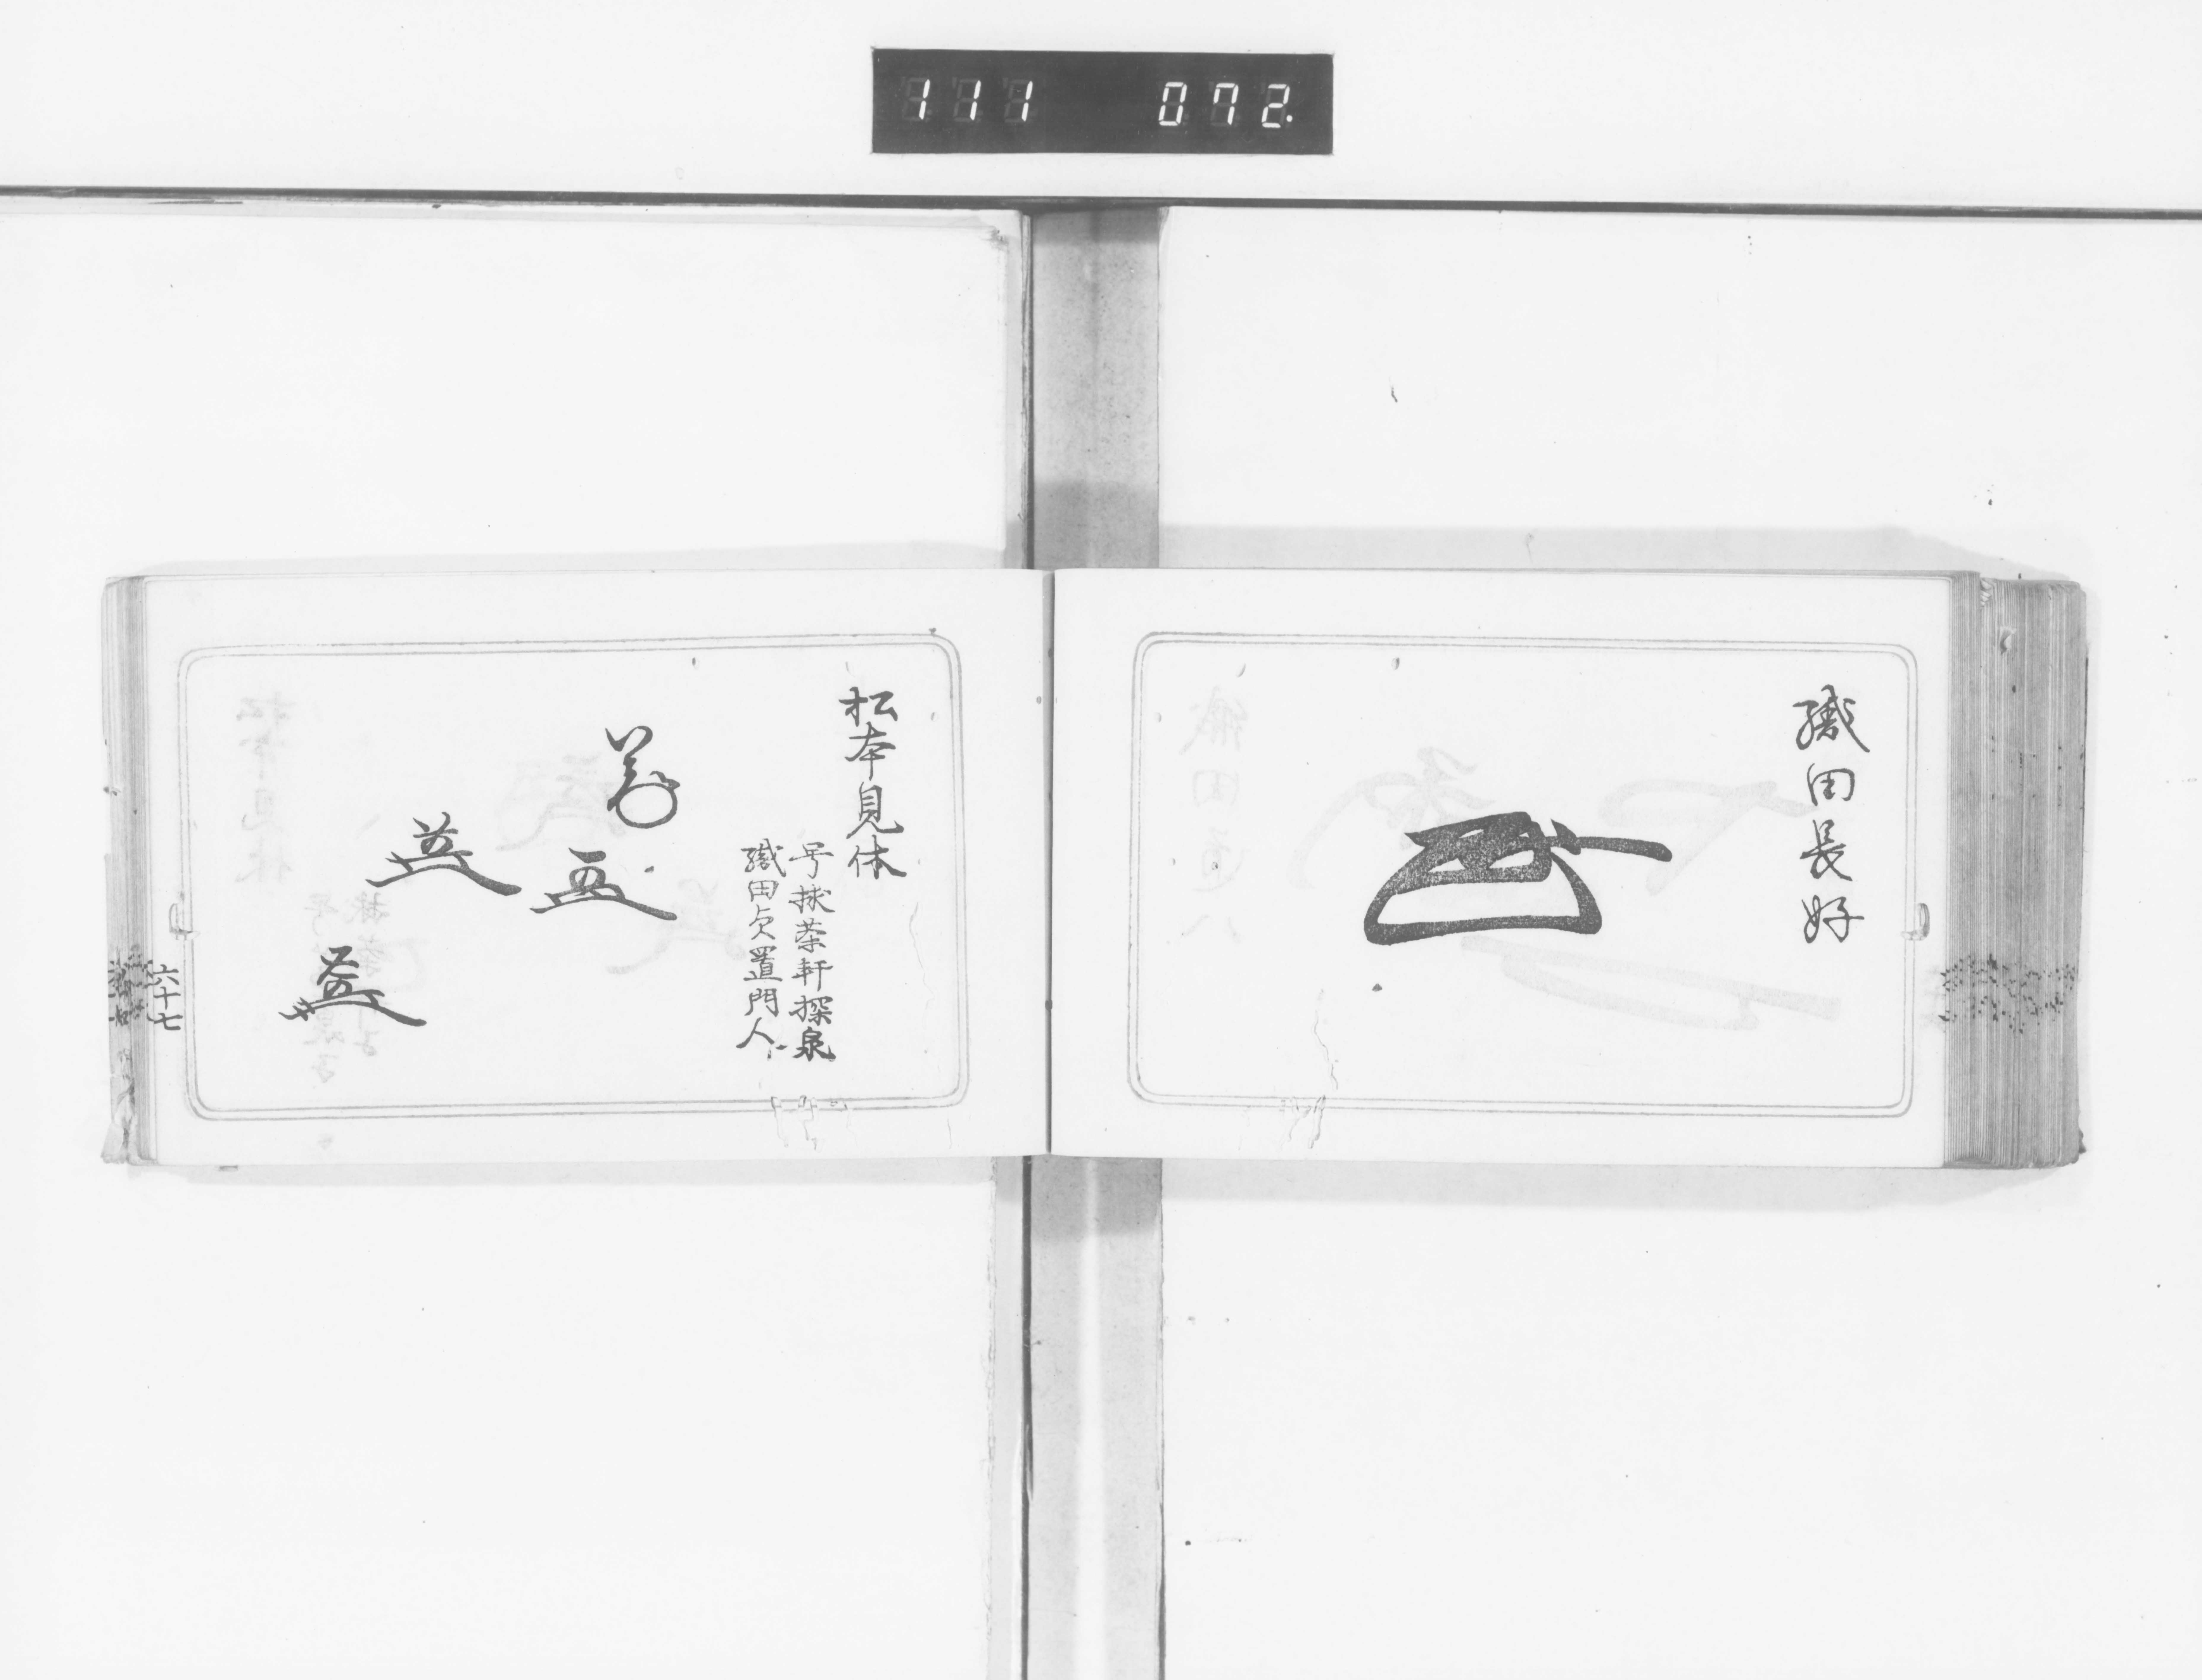 111 072.
織田長好
松本見休
号掬茶軒探泉
織田貞置門人
六十七